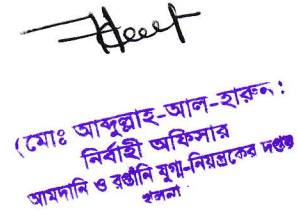 (মোঃ আব্দুল্লাহ-আল-হারুন:
নির্বাহী অফিসার
আমদানি ও রপ্তানি যুগ্ম-নিয়ন্ত্রকের দপ্তর
খুলনা